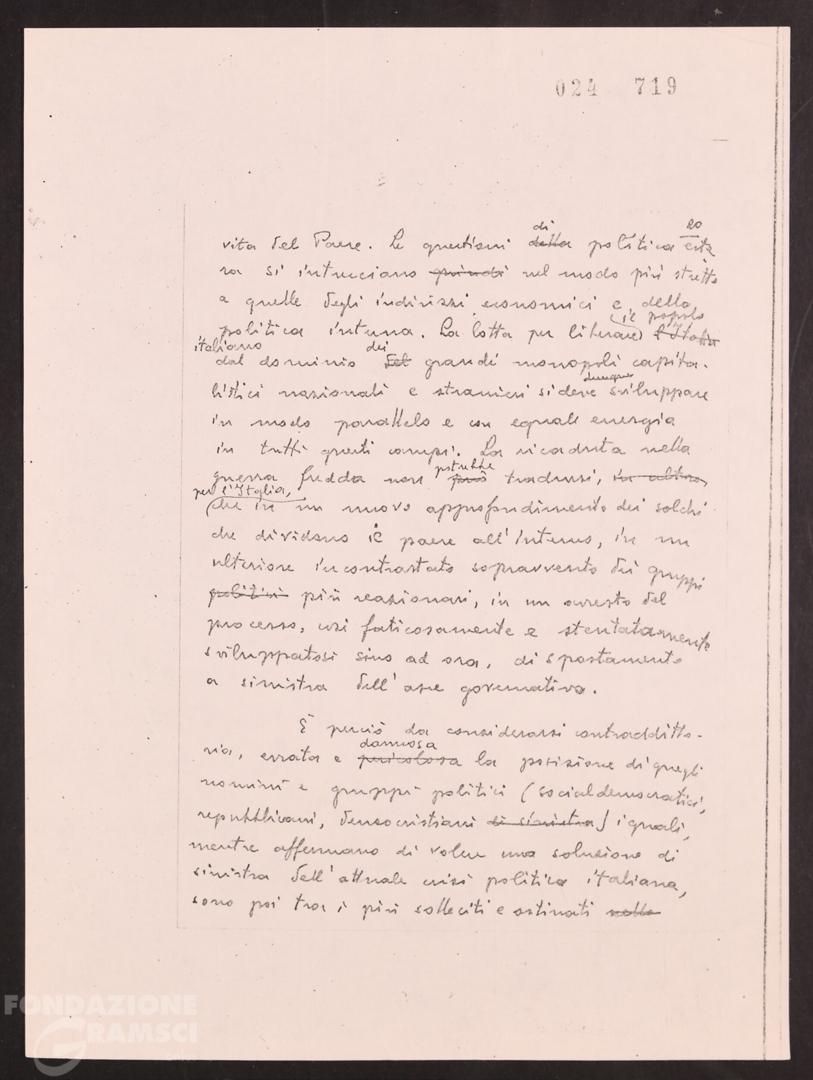 024 719
vita del Paese. Le questioni di della politica este
ra si intrecciano quindi nel modo più stretto
a quelle degli indirizzi economici e della
politica interna. La lotta per liberare il popolo l'Italia
italiano dal dominio dei del grandi monopoli capita-
listici nazionali e stranieri si deve dunque sviluppare
in modo parallelo e con eguale energia
in tutti questi campi. La ricaduta nella
guerra fredda non potrebbe può tradursi, in altro,
per l'Italia, che in un nuovo approfondimento dei solchi
che dividono il paese all'interno, in un
ulteriore incontrastato sopravvento dei gruppi
politici più reazionari, in un arresto del
processo, così faticosamente e stentatamente
sviluppatosi sino ad ora, di spostamento
a sinistra dell'asse governativo.
È perciò da considerarsi contradditto-
ria, errata e dannosa pericolosa la posizione di quegli
uomini e gruppi politici (socialdemocratici,
repubblicani, democristiani di sinistra) i quali,
mentre affermano di voler una soluzione di
sinistra dell'attuale crisi politica italiana,
sono poi tra i più solleciti e ostinati nella
FONDAZIONE
GRAMSCI